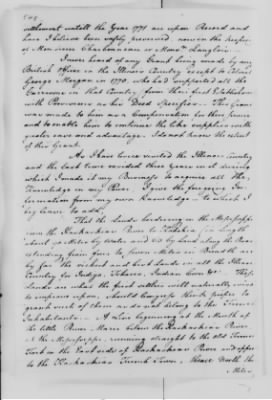 settlement untill the Year 1779 are upon Record and
have I believe been safely preserved, now in the
of Mon sieur Charbonneau or Monsr. Langlois.
I never heard of any Grant being made by any
British Officer in the Illinois Country except to Colonel
George Morgan in 1770, who had supported all the
Garrisons in that Country from their first Establishment
with Provisions as his Deed Specifies. The Grant
was made to him as a Compensation for those
and to enable him to continue the like supplies with
greater ease and advantage. I do not know the extent
of this Grant.
As I have twice visited the Illinois Country
and the last time resided three Years in it during
which I made it my Business to acquire all the
Knowledge in my Power. I give the foregoing In-
formation from my own Knowledge to which I
beg leave to add,
That the Lands bordering on the Mississippi
from the Kaskaskias River to Kahokia (in length
about 90 Miles by Water and 63 by land along the
extending from four to seven Miles in Breadth are
by far the richest and best lands in all the Illinois
Country for Indigo, Tobacco, Indian Corn &c. These
Lands are what the first settlers will naturally wish
to improve upon, should Congress think proper to
grant such of them as do not belong to the French
Inhabitants. A Line beginning at the Mouth of
the little River Marie below the Kaskaskias River
on the Mississippi running straight to the old French
Fort on the East side of Kaskaskias River and opposite
to the Kaskaskias French Town, thence North the